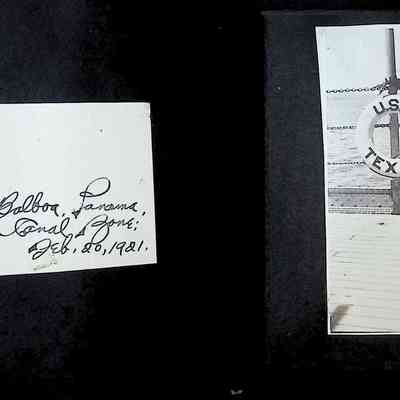 Balboa, Panama,
Canal Zone;
Feb. 20, 1921.
U.S
TEX